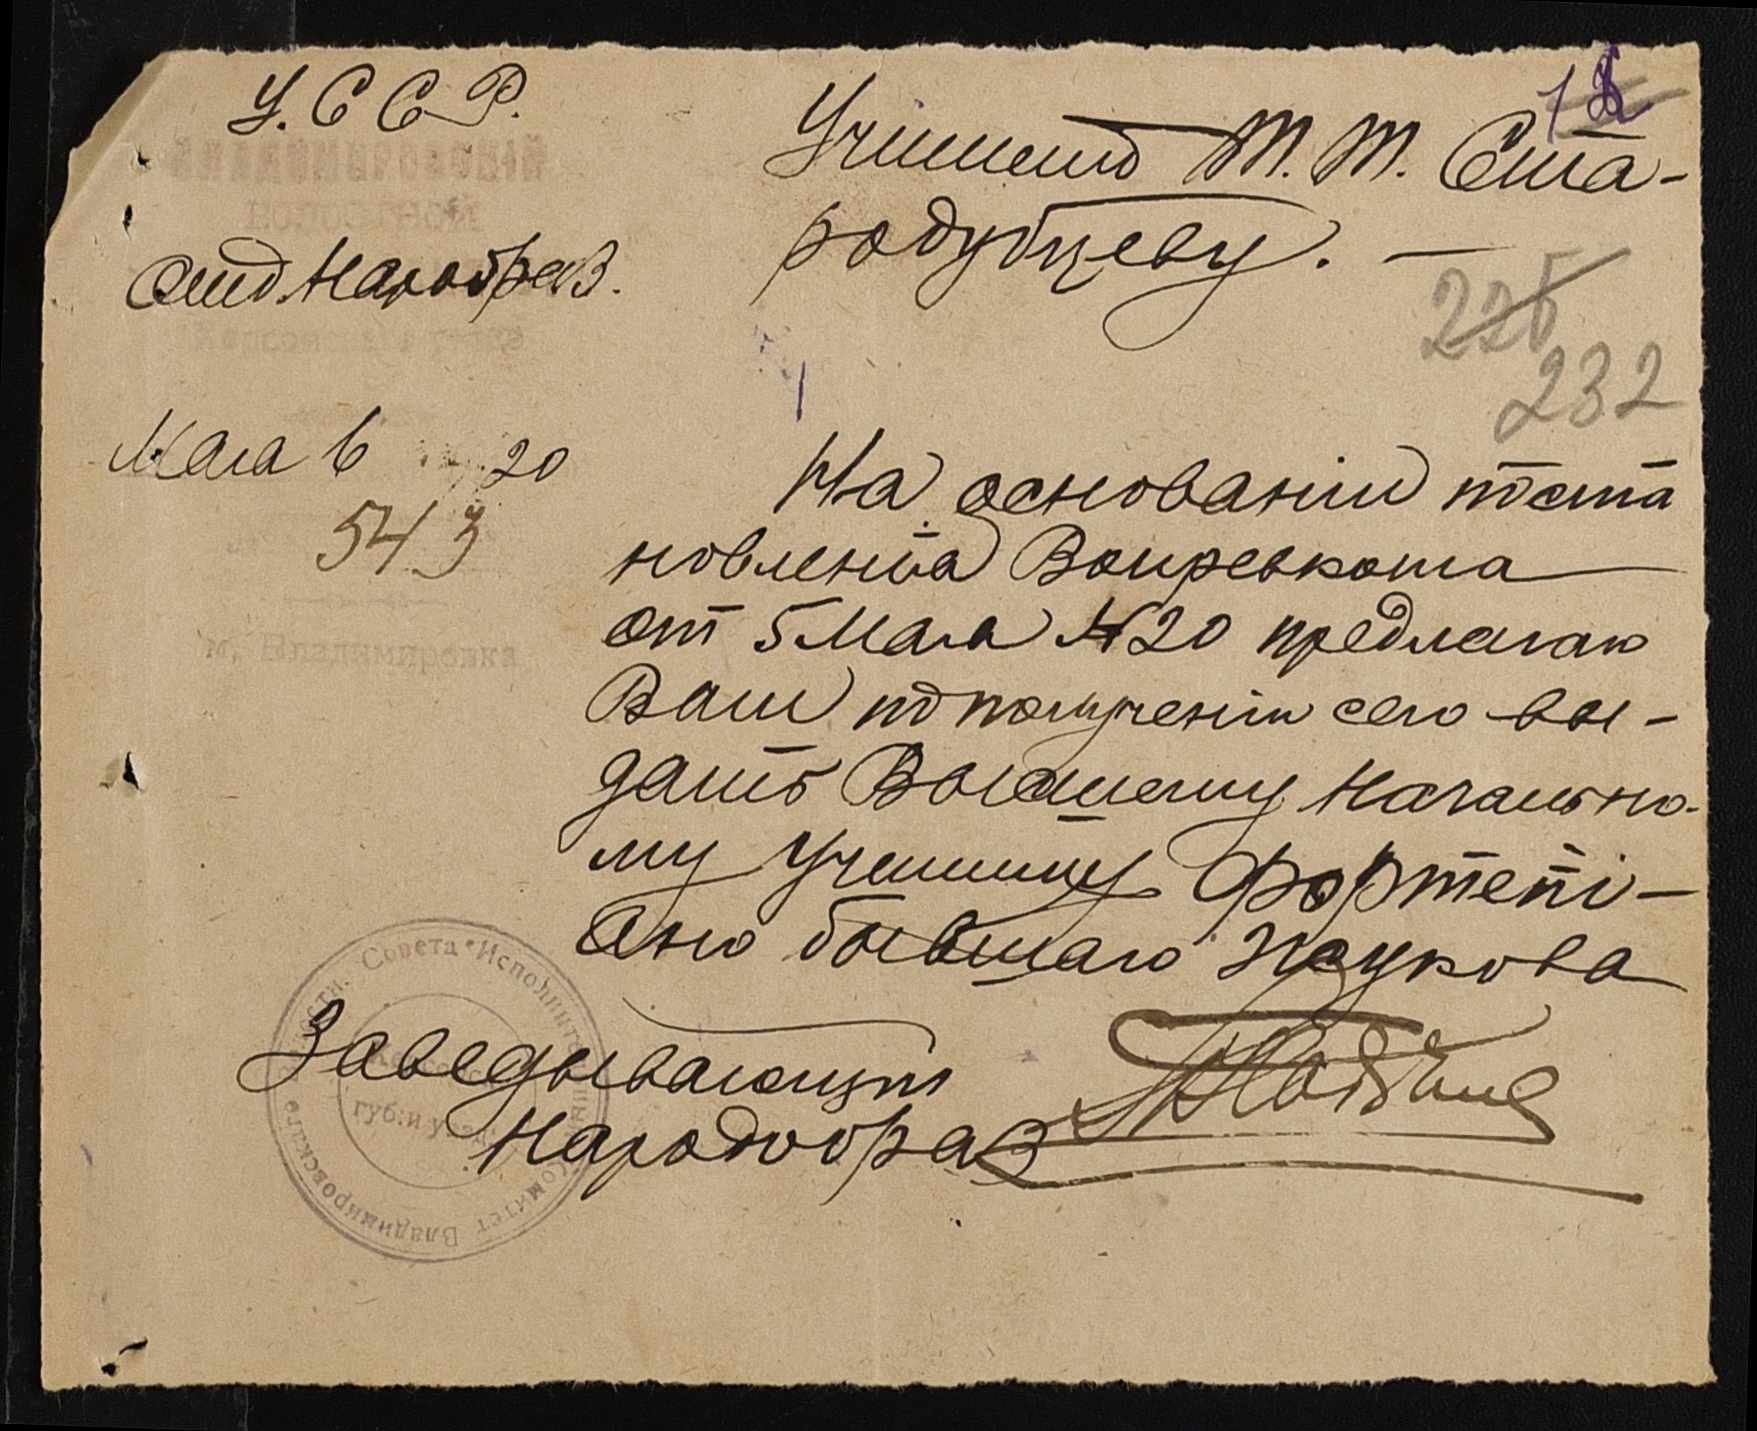 У. С С Р.
Владимировскій
волостной
Отд. Народобраз.
Херсонской губ.
Мая 6 20
543
м. Владимировка
Учителю Т. Т. Ста-
родубцеву. —
18
225
232
На основаніи поста
новленія Волревкома
от 5 Мая № 20 предлагаю
Вам по полученіи сего вы-
дать Высшему Начально-
му Училищу Фортепі-
ано бывшаго Жукова
Заведывающій
Народобраз
Совета * Исполнительный Комитет Владимировскаго
губ: и у